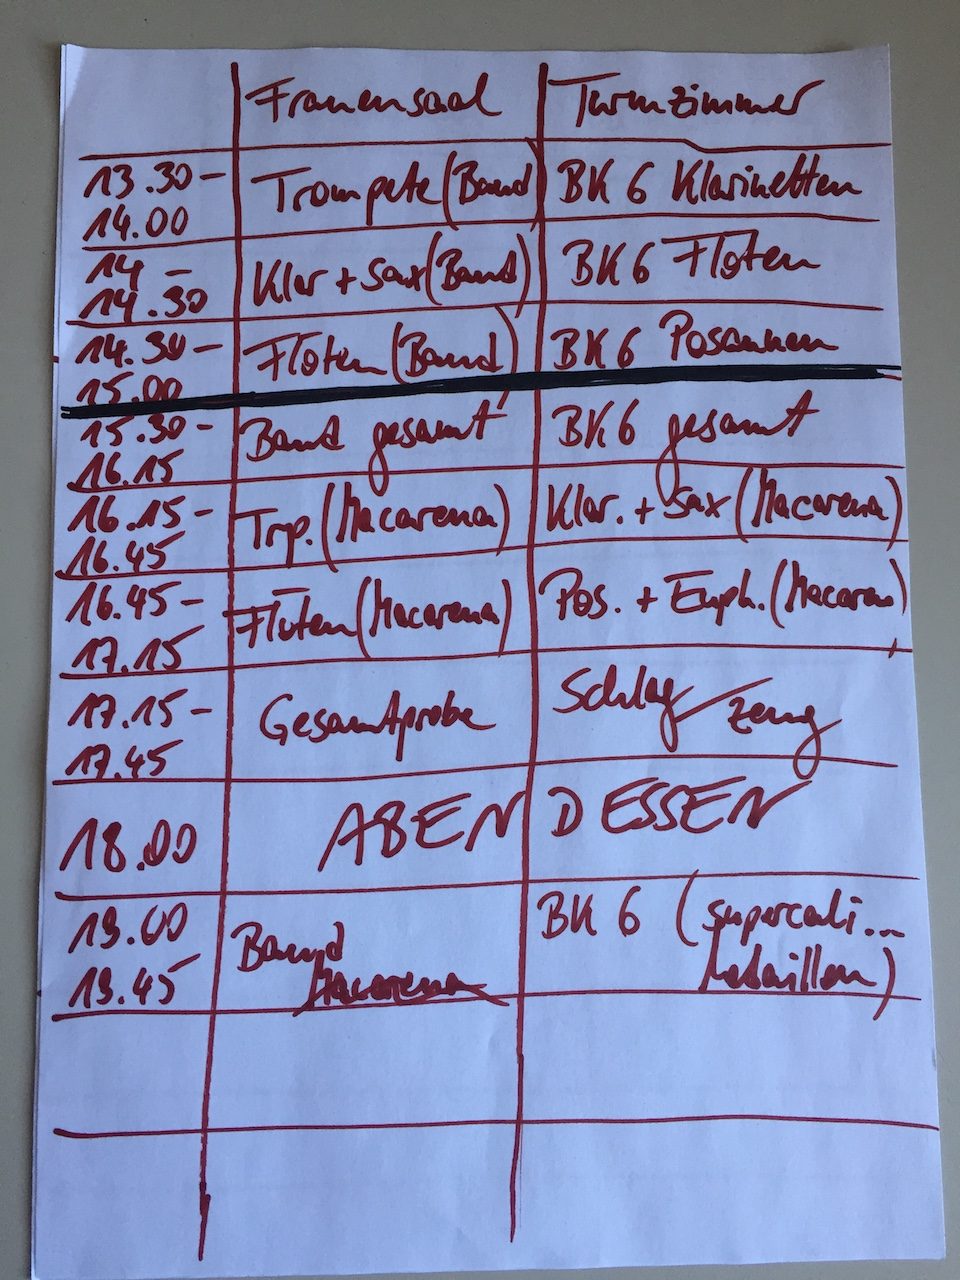 Frauensaal Turmzimmer
13.30 – 14.00 Trompete (Band) BK 6 Klarinetten
14 – 14.30 Klar + Sax (Band) BK 6 Flöten
14.30 – 15.00 Flöten (Band) BK 6 Posaunen
15.30 – 16.15 Band gesamt BK 6 gesamt
16.15 – 16.45 Trp. (Macarena) Klar. + Sax (Macarena)
16.45 – 17.15 Flöten (Macarena) Pos. + Euph. (Macarena)
17.15 – 17.45 Gesamtprobe Schlagzeug
18.00 ABENDESSEN
19.00 19.45 Band Macarena BK 6 (supercali... Medaillon)